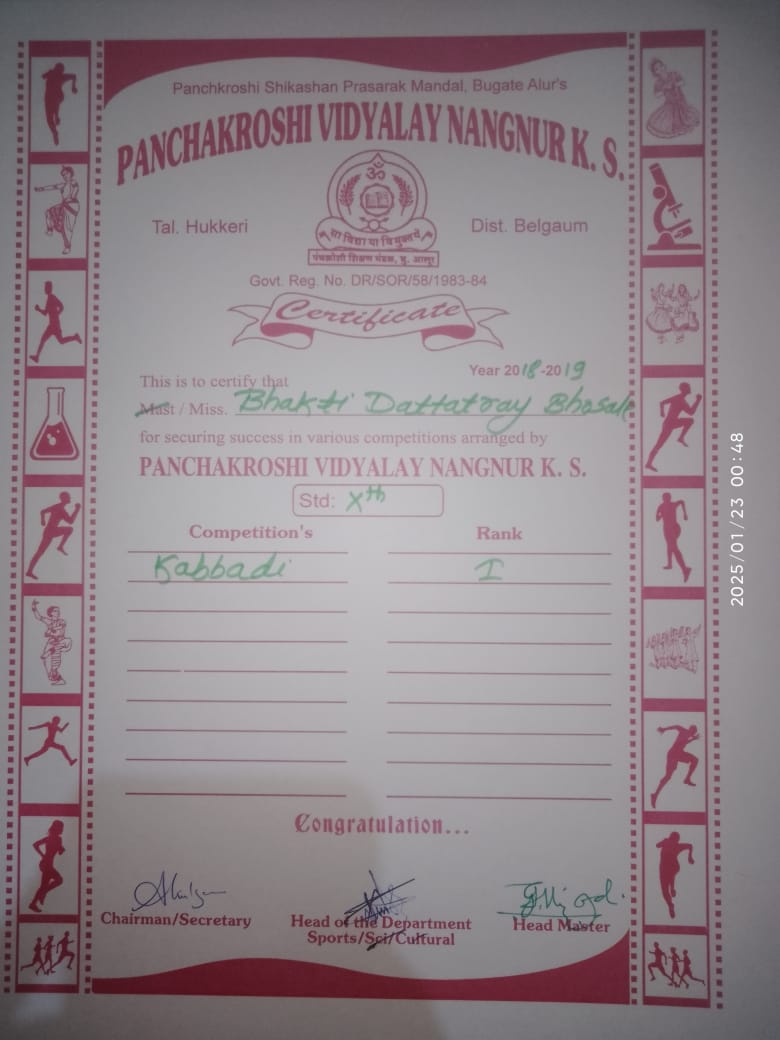 Panchkroshi Shikashan Prasarak Mandal, Bugate Alur's
PANCHAKROSHI VIDYALAY NANGNUR K. S.
ॐ
Tal. Hukkeri
Dist. Belgaum
सा विद्या या विमुक्तये
पंचक्रोशी शिक्षण मंडळ, बु. आलूर
Govt. Reg. No. DR/SOR/58/1983-84
Certificate
Year 2018-2019
This is to certify that
Mast / Miss. Bhakti Dattatray Bhosale
for securing success in various competitions arranged by
PANCHAKROSHI VIDYALAY NANGNUR K. S.
Std: Xth
Competition's Rank
Kabbadi I
Congratulation...
Chairman/Secretary
Head of the Department
Sports/Sci/Cultural
Head Master
2025/01/23 00:48